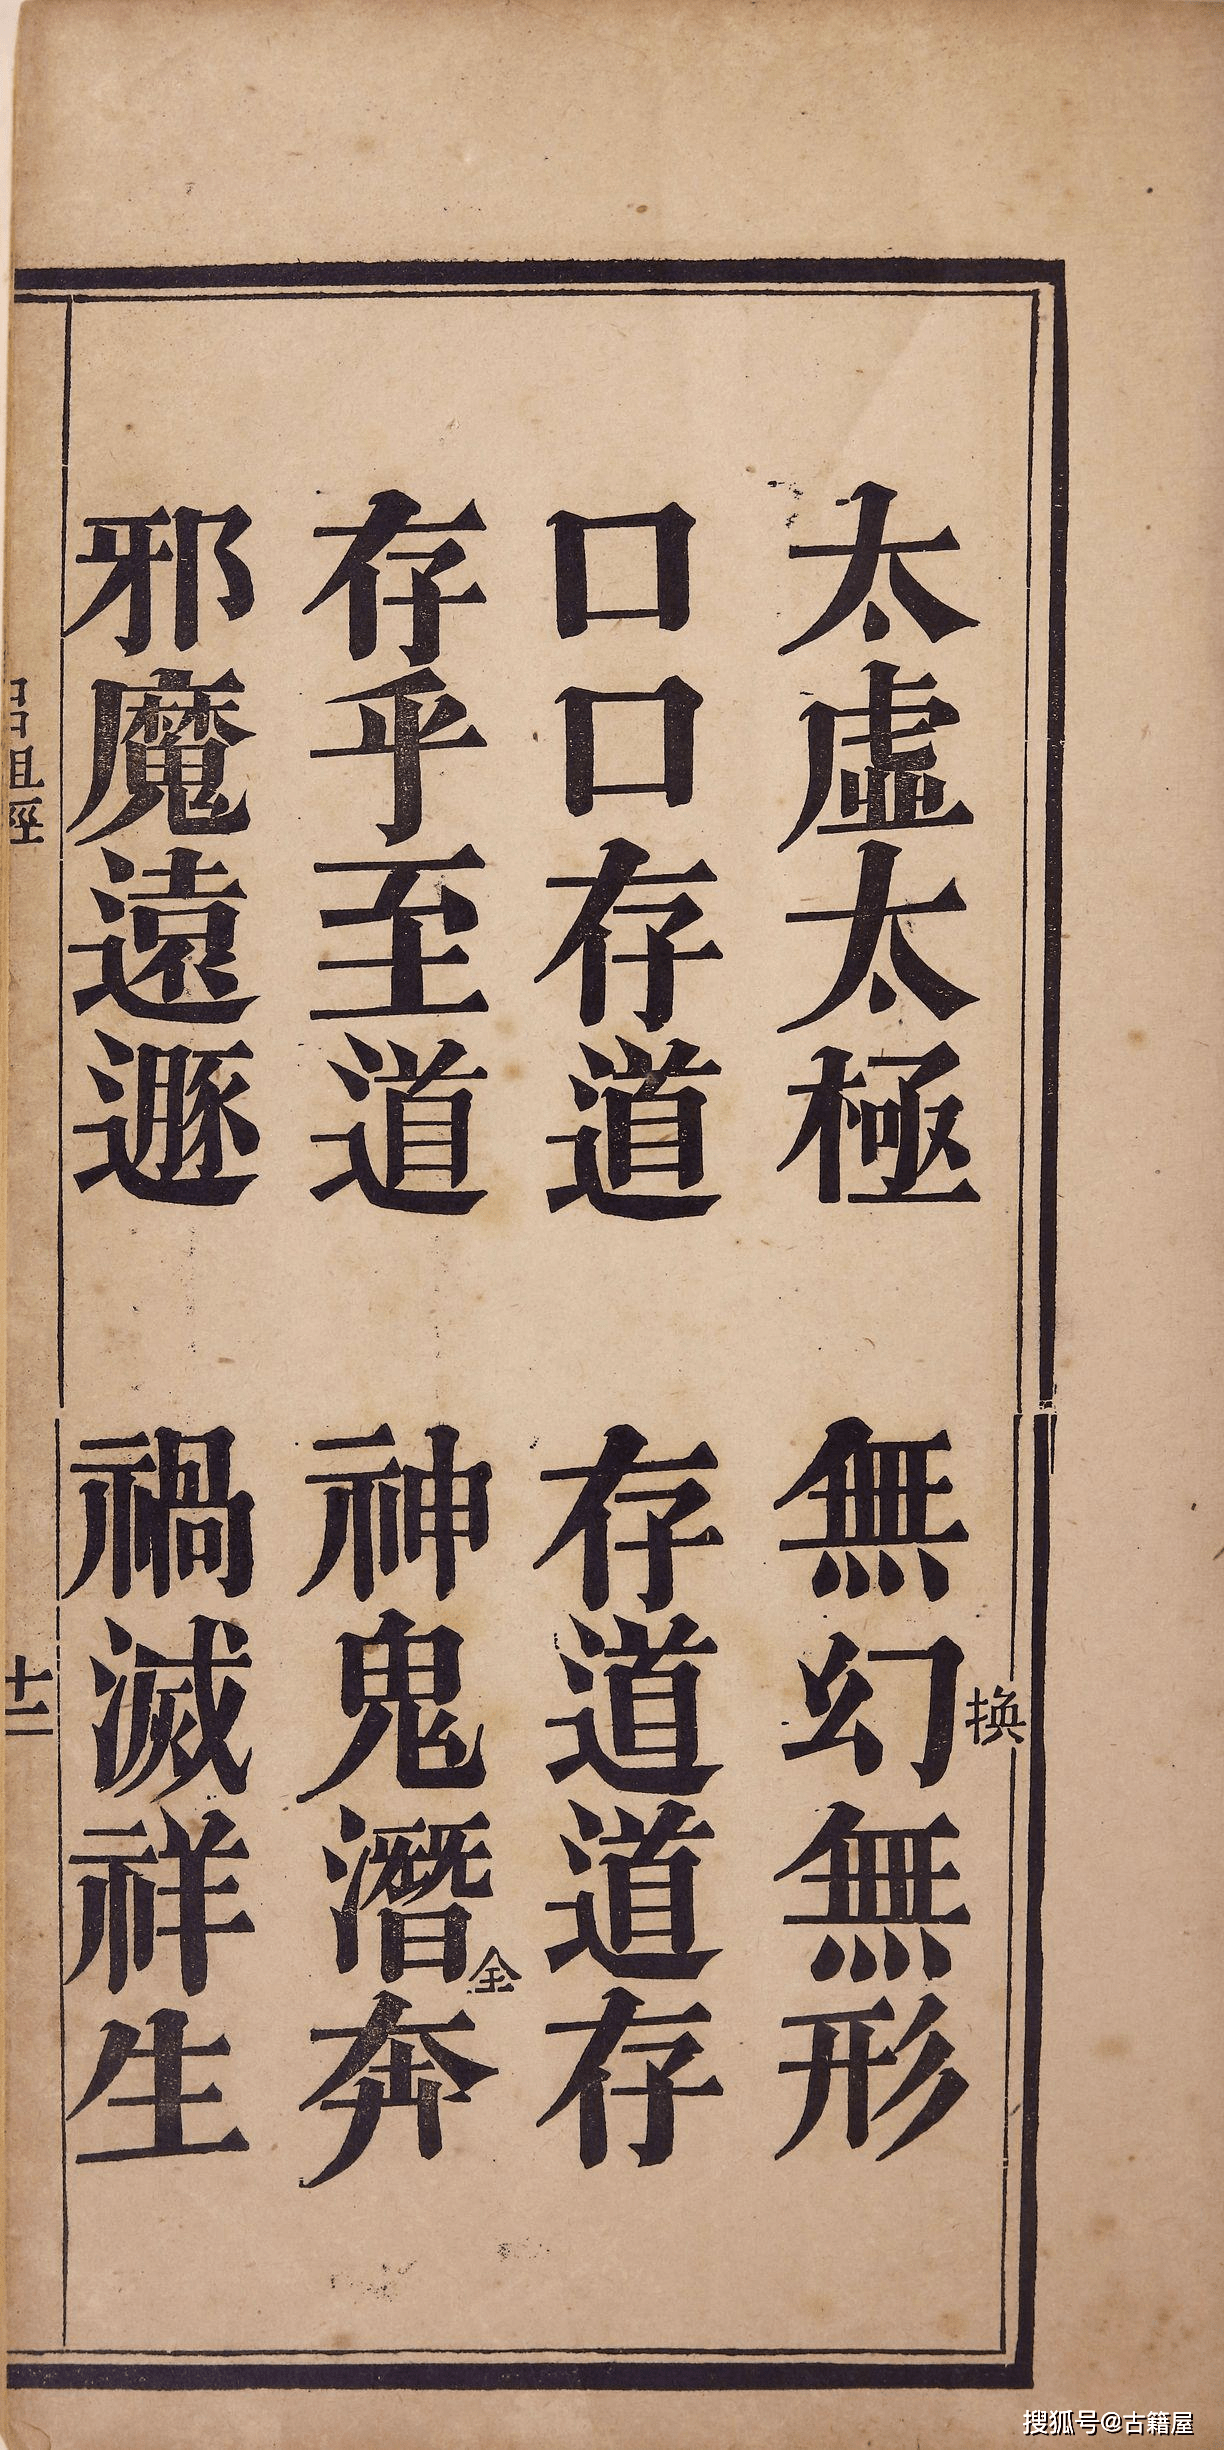 太虛太極　無幻無形
換
口口存道　存道道存
存乎至道　神鬼潛奔
全
邪魔遠遯　禍滅祥生
呂祖經
十二
搜狐号@古籍屋